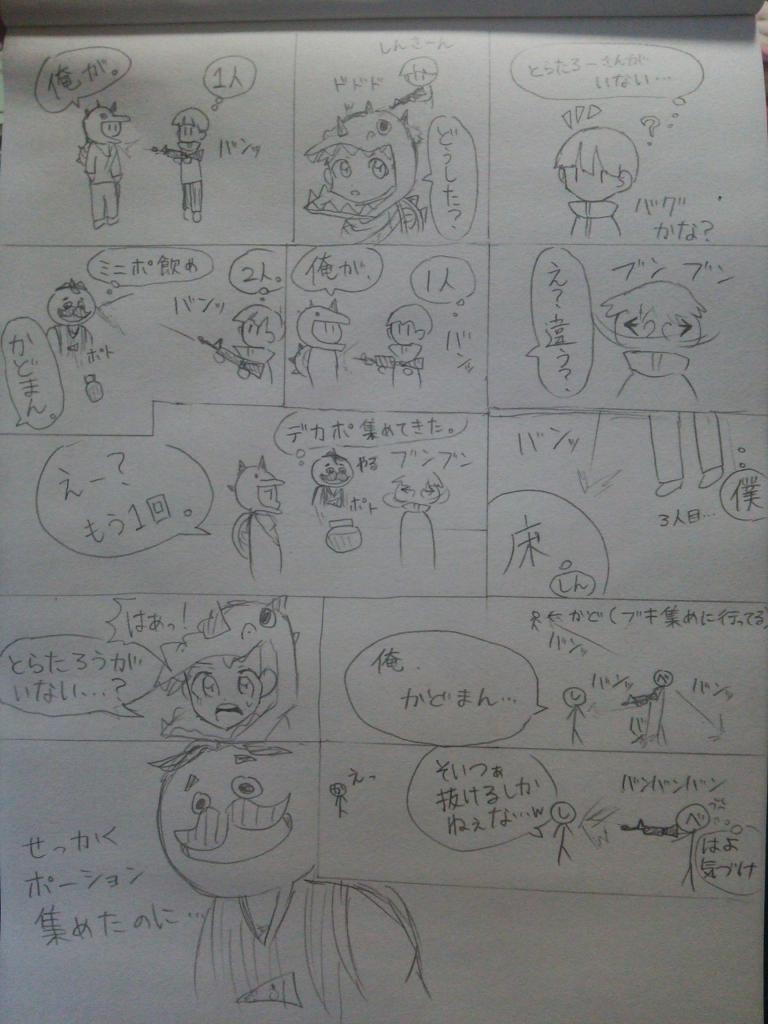 とらたろーさんが
いない…
?
バグ
かな?
しんさーん
ドドド
どうした?
1人
俺が。
バンッ
ブンブン
え?違う?
1人
俺が、
バンッ
2人。
バンッ
ミニポ飲め
ポト
かどまん。
バンッ
僕
3人目…
床。
しん
デカポ集めてきた。
やる
ブンブン
ポト
えー?
もう1回。
かど(ブキ集めに行ってる)
バンッ
バンッ
バンッ
バ
し
べ
俺、
かどまん…
はあっ!
とらたろうが
いない…?
バンバンバン
べ
はよ
気づけ
そいつぁ
抜けるしか
ねぇな…w
し
えっ
か
せっかく
ポーション
集めたのに…